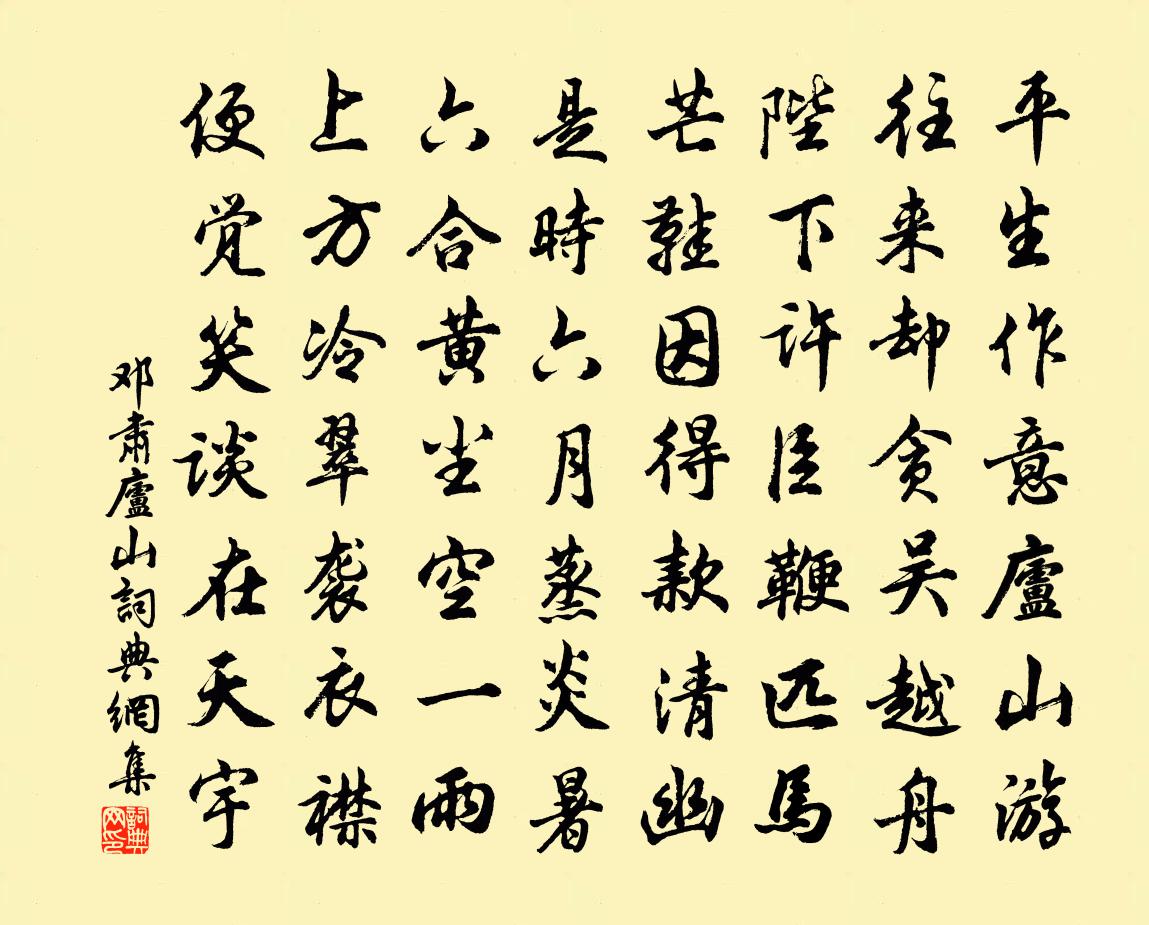 平生作意廬山游
往来却贪吴越舟
陛下许臣鞭匹馬
芒鞋因得款清幽
是時六月蒸炎暑
六合黄尘空一雨
上方冷翠袭衣襟
便觉笑谈在天宇
邓肃廬山詞典網集
詞典
网印